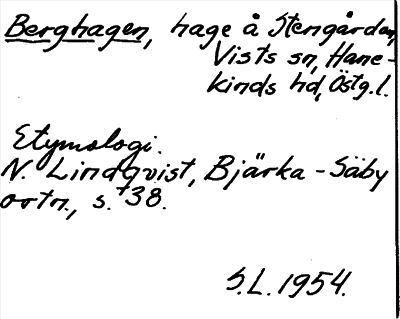 Berghagen, hage å Stengården,
Vists sn, Hane-
kinds hd, Östg.l.
Etymologi.
N. Lindqvist, Bjärka-Säby
ortn., s. 38.
S.L. 1954.